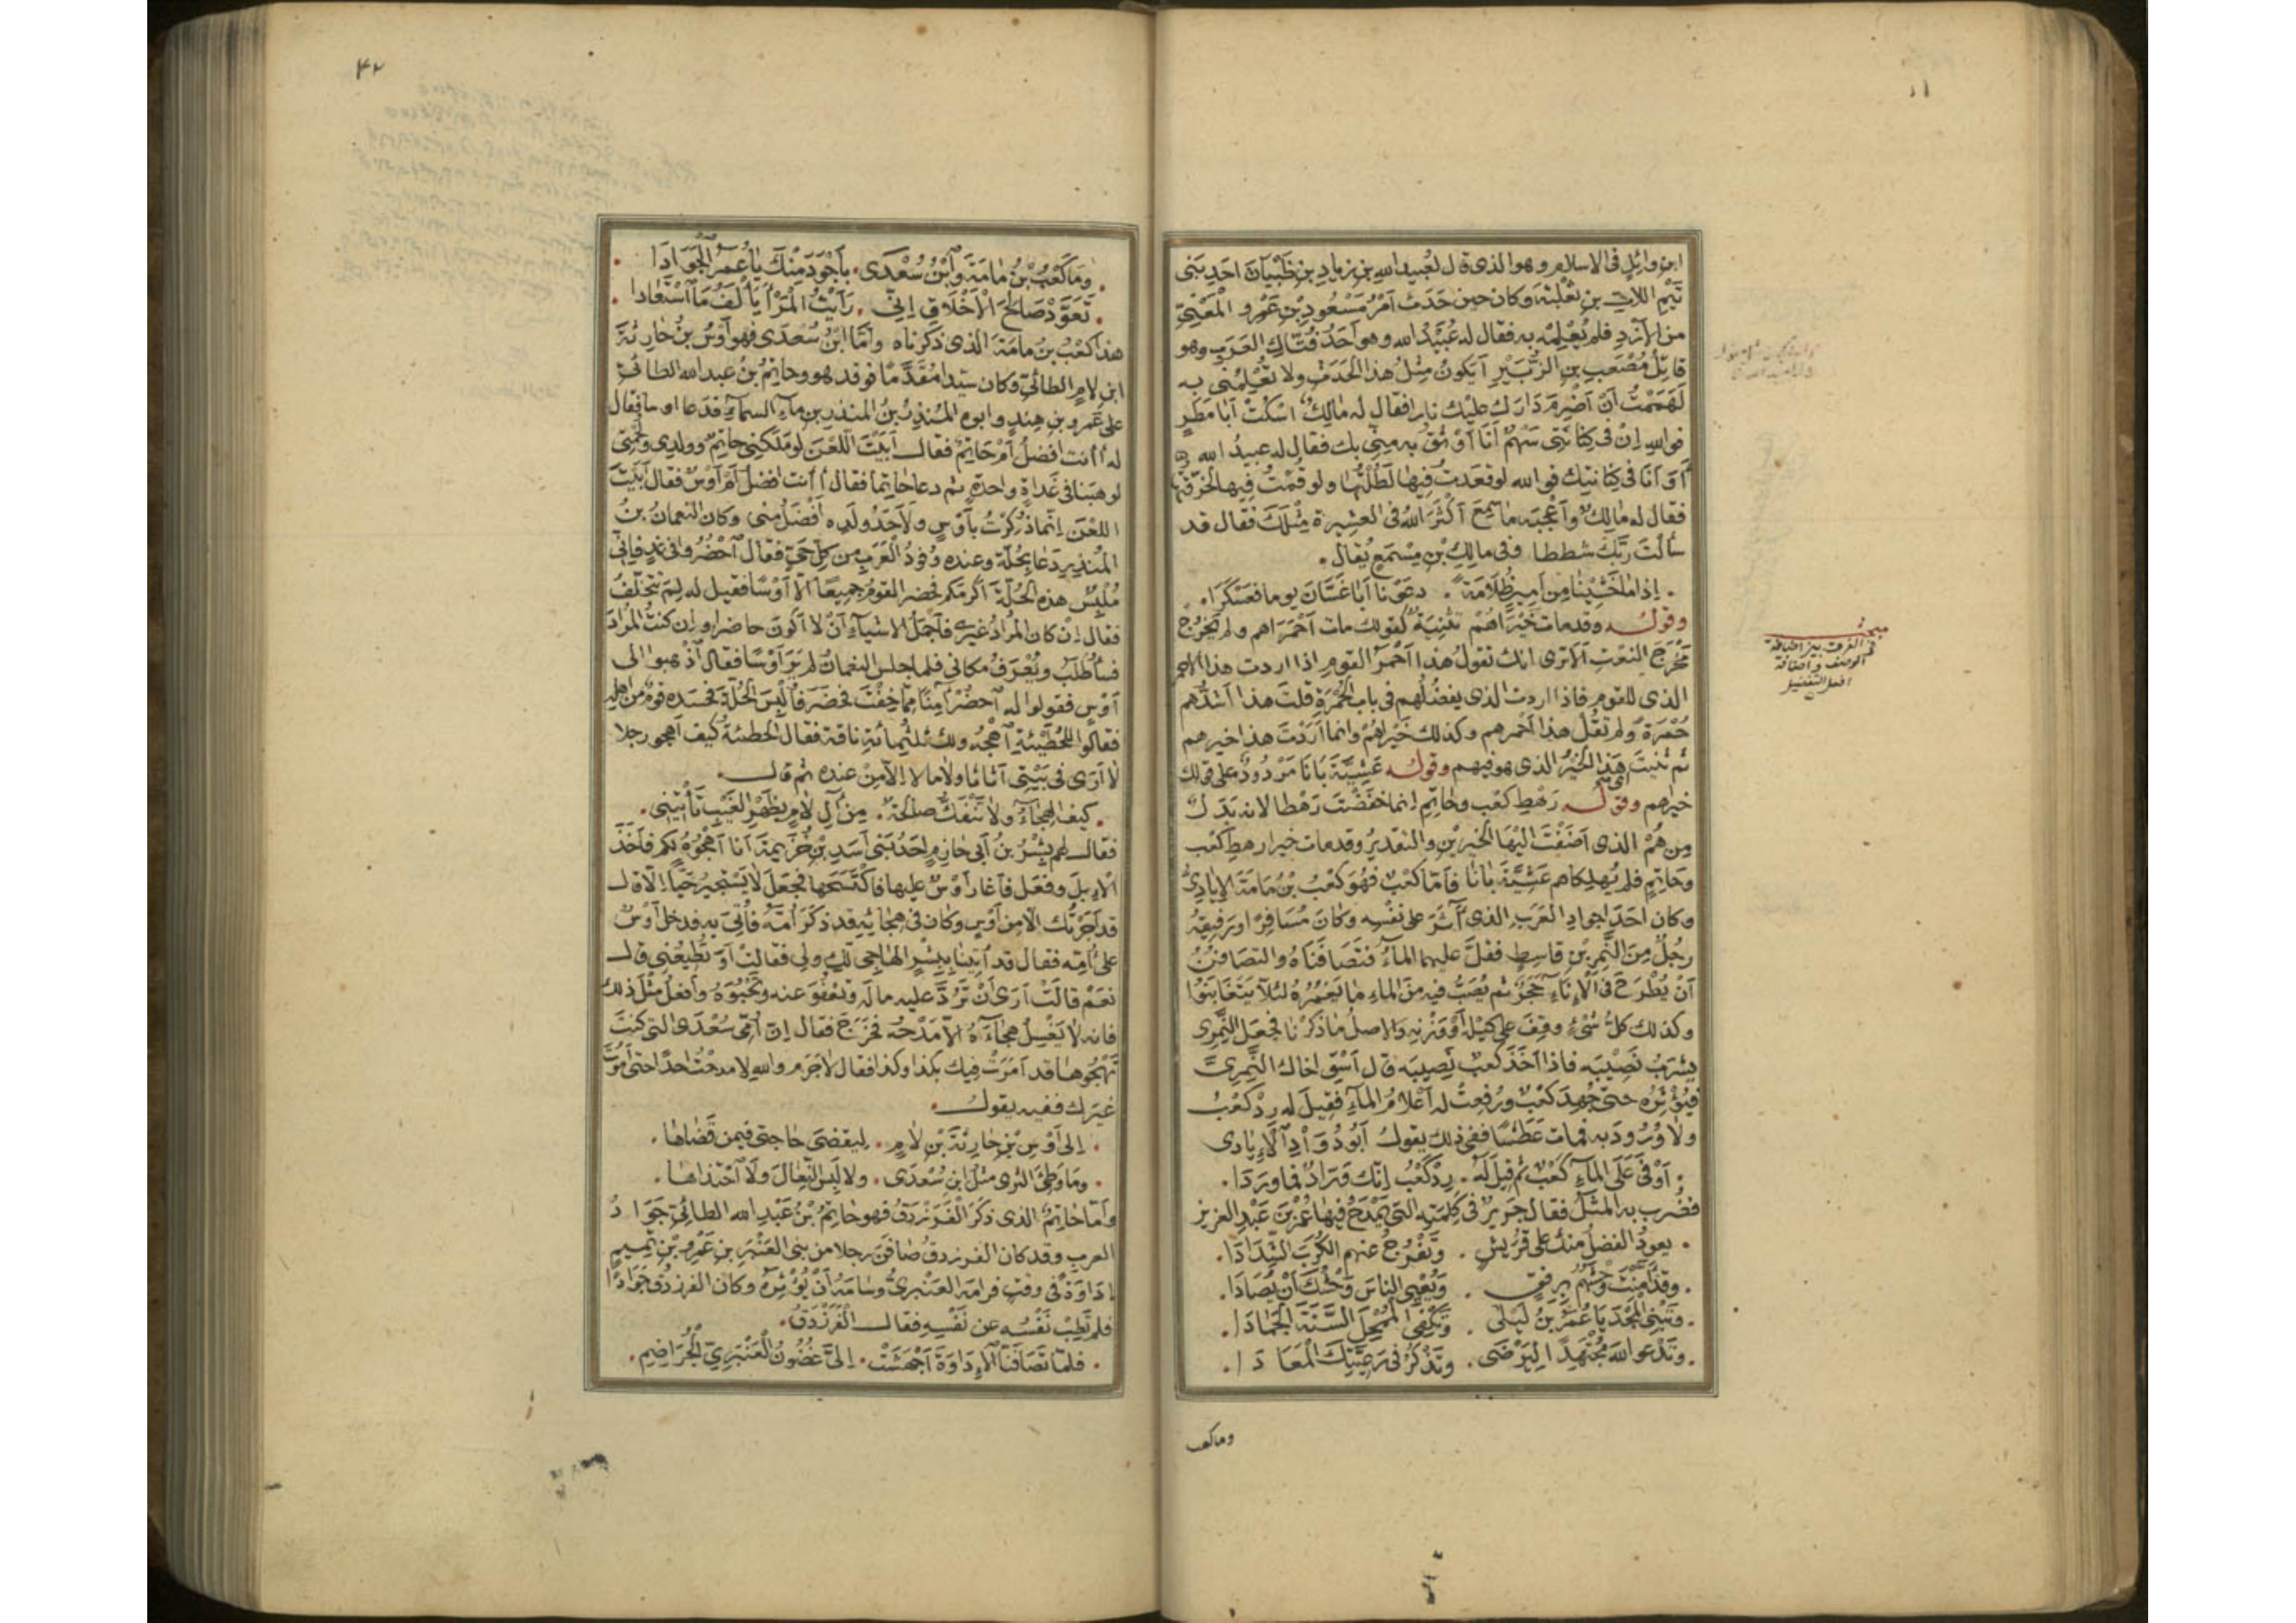 ابن وائل في الاسلام وهو الذى قال لعبيد الله بن زياد بن ظَبْيان احد بنى
تَيْمِ اللّات بن ثعلبة وكان حين حَدَث اَمْرُ مَسْعُودِ بْنِ عَمْرو المَعْنِيِّ
من الأزد فلم يُعْلِمْه به فقال له عُبَيْدُ الله وهو اَحَدُ فُتّاكِ العَرَبِ وهو
قاتِلُ مُصْعَبِ بن الزُّبَيْرِ اَيكونُ مِثْلُ هذا الحَدَثِ ولا تُعْلِمُنى به
لَهَمَمْتُ اَنْ اُضْرِمَ دَارَكَ عليك نارا فقال له مالِكٌ اسْكُتْ اَبا مَطَرٍ
فوالله اِنّ في كِنَانَتى سَهْمٌ اَنَا اَوْثَقُ به مِنِّى بك فقال له عبيدُ الله
اَوَ اَنَا في كِنَانتِك فوالله لو قعَدتُ فيها لَطُلْتُها ولو قُمْتُ فيها لخَرَقْتُها
فقال له مالِكٌ وأَعْجَبَه ما سَمِعَ اَكْثَرَ اللهُ في العشيرة مِثْلَكَ فقال قد
سأَلْتَ رَبَّكَ شططا وفي مالِكِ بْنِ مِسْمَعٍ يُقال
اِذا ما خَشِينَا مِن اَمِيرٍ ظُلَامَةً دعَوْنا اَبَا غَسَّانَ يوما فعَسْكَرَا
وقوله وقد مات خَيْرَاهُمْ تثنيةٌ كقولك مات اَحْمَرَاهم ولم يَخْرُجْ
مَخْرَجَ النعتِ اَلا ترى انك تقولُ هذا اَحْمَرُ القومِ اذا اردت هذا الاحمر
الذى للقوم فاذا اردت الذى يفضُلُهم في باب الحُمْرَةِ قلتَ هذا اَشدُّهم
حُمْرَةً ولم تقُلْ هذا اَحْمَرهم وكذلك خَيْرَاهُمْ وانما اَرَدْتَ هذا خيرهم
ثم ثنيت هَذا الخَيْرُ الذى هو فيهم وقوله عَشِيَّةَ بَانَا مَرْدُودٌ على قولك
خيراهم وقوله رَهْطِ كَعْب وحَاتِمِ انما خفَضْتَ رَهْطا لانه بَدَلٌ
مِن هُمْ الذى اَضَفْتَ اليْهَا الخَيْرَيْن والتقديرُ وقد مات خيرا رهطِ كَعْب
وحَاتِمٍ فلم يُهلِكاهم عَشِيَّةَ بَانَا فاَمّا كَعْبٌ فهُوَ كَعْبُ بْنُ مَامَةَ الاِيَادِىُّ
وكان احَدَ اجوادِ العَرَبِ الذى آثَرَ على نفْسِه وكان مُسَافِرًا ورَفِيقُه
رجُلٌ مِنَ النَّمِرِ بْنِ قاسِطٍ فقَلَّ عليهما الماءُ فتَصَافَنَاهُ والتصَافُنُ
اَنْ يُطْرَحَ في الْاِنَاءِ حَجَرٌ ثم يُصَبُّ فيه مِنَ الماءِ ما يَغْمُرُهُ لئلّا يَتَغَابَنُوا
وكذلك كلُّ شَىْءٍ وقِفَ على كَيْلِه اَوْ وَزْنِه والاصلُ ما ذكَرْنا فجَعَل النَّمِرى
يشرَبُ نَصِيبَه فاذا اَخَذَ كَعبٌ نصِيبَه قال اَسْقِ اخاك النَّمِرِىَّ
فيُؤْثِرُه حتّى جُهِدَ كَعْبٌ ورُفِعَتْ له اَعْلامُ الماءِ فقِيلَ له رِدْ كَعْبُ
ولا وُرُودَ به فمات عَطَشًا ففى ذلك يقولُ اَبُو دُوَادٍ اَلْاِيَادِى
اَوْفَى عَلَى الماءِ كَعْبٌ ثم قِيلَ لَهُ رِدْ كَعْبُ اِنَّك وَرَّادٌ فما ورَدَا
فضُرِب به المثَلُ فقال جرِيرٌ في كَلِمَتِه التى يَمْدَحُ فيها عُمَرَ بْنَ عَبْدِ العزيز
يعودُ الفضلُ منك على قُرَيْشٍ وتَفْرُجُ عنهم الكُرَبَ الشِّدَادَا
وقد اَمَّنْتَ وَحْشَهُمُ بِرِفْقٍ ويُعْيِى الناسَ وَحْشُكَ اَنْ يُصَادَا
وتَبْنِى المَجْدَ يَا عُمَرَ بْنَ لَيْلَى وتَكْفِى المُمْحِلَ السَّنَةَ الجَمَادَا
وتَدْعُو اللهَ مُجْتَهِدًا لِيَرْضَى وتَذْكُرُ في رَعِيَّتِكَ الْمَعَادَا
وما كعب
مبحث
في الفرق بين اضافة
الوصف واضافة
افعل التفضيل
٤٢
وَمَا كَعْبُ بْنُ مَامَةَ وَابْنُ سُعْدَى بِأَجْوَدَ مِنْكَ يَا عُمَرُ الْجَوَادَا
تَعَوَّدْ صَالِحَ الْاَخْلَاقِ اِنِّى رَاَيْتُ الْمَرْأَ يَأْلَفُ مَا اسْتَعَادَا
هذا كَعْبُ بن مامَةَ الذى ذكَرْناه واَمَّا ابْنُ سُعْدَى فهو اَوْسُ بن حَارِثَةَ
ابن لامٍ الطائىّ وكان سيّدا مُقَدَّمًا فوفد هو وحاتِمُ بنُ عبد الله الطائىُّ
على عَمْرِو بنِ هِنْدٍ وابوه المُنْذِرُ بْنُ المنذرِ بن ماءِ السماءِ فدَعا اوسا فقال
له أانت افضلُ اَمْ حاتِمٌ فقال اَبَيْتَ اللَّعْنَ لو مَلَكَنِى حاتِمٌ وولدِى ولُحْمَتِى
لوهبَنا في غَدَاةٍ واحدةٍ ثم دعا حاتِمًا فقال أانت افضل اَمْ اَوْسٌ فقال اَبَيْتَ
اللعْنَ اِنَّمَا ذُكِرْتُ بِاَوْسٍ ولاَحَدُ ولَدِه اَفْضَلُ مِنِّى وكان النعمانُ بْنُ
المُنذِرِ دَعا بِحُلَّةٍ وعنده وُفودُ الْعَرَبِ مِن كلّ حَىٍّ فقال اَحْضُرُوا في غدٍ فاِنِّى
مُلْبِسٌ هذه الحُلَّةَ اَكْرَمَكم فحضر القومُ جميعًا الّا اَوْسًا فقيل له لِمَ تتَخَلّفُ
فقال اِنْ كان المُرَادُ غَيْرِى فاَجْمَلُ الاشيَآءِ اَنْ لا اَكُونَ حاضرا واِن كنتُ المُرَادَ
فسَأُطْلَبُ ويُعْرَفُ مكانى فلما جلس النعمانُ لم يَرَ اَوْسًا فقال اَذهبوا الى
اَوْسٍ فقولوا له اَحضُرْ آمِنًا مِمّا خِفْتَ فحَضَرَ فاُلْبِسَ الحُلَّةَ فحَسَدَه قومٌ من اهلِه
فقالُوا للحُطَيْئَةِ اَهْجُه ولك ثلثُمائةِ ناقة فقال الحُطيئةُ كيف اَهجو رجلا
لا اَرَى في بَيْتِى اَثاثا ولا مالا اِلّا مِنْ عنده ثم قال
كيفَ الهِجَاءُ ولا تَنْفَكُّ صالحةٌ مِنْ آلِ لَأْمٍ بِظَهْرِ الْغَيْبِ تَأْتِينِى
فقال لهم بِشْرُ بْنُ اَبى خازِمٍ احَدُ بَنِى اَسَدِ بْنِ خُزَيمةَ اَنا اَهْجُوهُ لكم فاَخَذَ
الْاِبِلَ وفعَل فاَغارَ اَوْسٌ عليها فاكْتَسَحَها فجعَلَ لا يَسْتَجِيرُ حَيًّا اِلّا قال
قد اَجَرْتُك الّا مِن اَوْسٍ وكان في هِجائِه قد ذكَرَ اُمَّهُ فاُتِىَ به فدخل اَوْسٌ
على اُمِّه فقال قد اَتَيْنَا بِبِشْرٍ الهاجى لكِ ولِى فقالت اَوَ تُطِيعُنِى قال
نعَمْ قالَتْ اَرَى اَنْ تَرُدَّ عليه مالَه وتعْفُوَ عنه وتَحْبُوَهُ وأفعل مثلَ ذلك
فانه لا يَغْسِلُ هِجَاءَهُ اِلّا مَدْحُهُ فخرَجَ فقال اِنّ اُمِّى سُعْدَى التى كنتَ
تَهْجُوها قد اَمَرَتْ فيك بكذا وكذا فقال لا جَرَمَ والله لا مدحْتُ احدًا حتى اَمُوتَ
غيرَك ففيه يقول
اِلَى اَوْسِ بْنِ حَارِثَةَ بْنِ لَأْمٍ لِيقضىَ حاجتى فيمن قَضَاها
ومَا وَطِئَ الثرى مثلُ ابْنِ سُعْدَى ولا لَبِسَ النِّعالَ ولَا اَحْتَذاها
واَما حاتِمٌ الذى ذكَرَ الفَرَزْدَقُ فهو حاتِمُ بْنُ عَبْدِ الله الطائىُّ جَوَادُ
العرب وقد كان الفرزدقُ صَافَنَ رجلا من بنى العَنْبَرِ بن عَمْرِو بْنِ تَمِيمٍ
اِدَاوَةً في وقتٍ فرامَه العَنْبرِىُّ وسَامَهُ اَنْ يُؤْثِرَهُ وكان الفرزدقُ جَوَادًا
فلم تَطِبْ نَفْسُه عن نَفْسِهِ فقال الْفَرَزْدَقُ
فلمّا تَصَافَنَّا الْاِدَاوَةَ اَجْهَشَتْ اِلَىَّ غُضُونُ الْعَنْبَرِىِّ الْجُرَاضِمِ